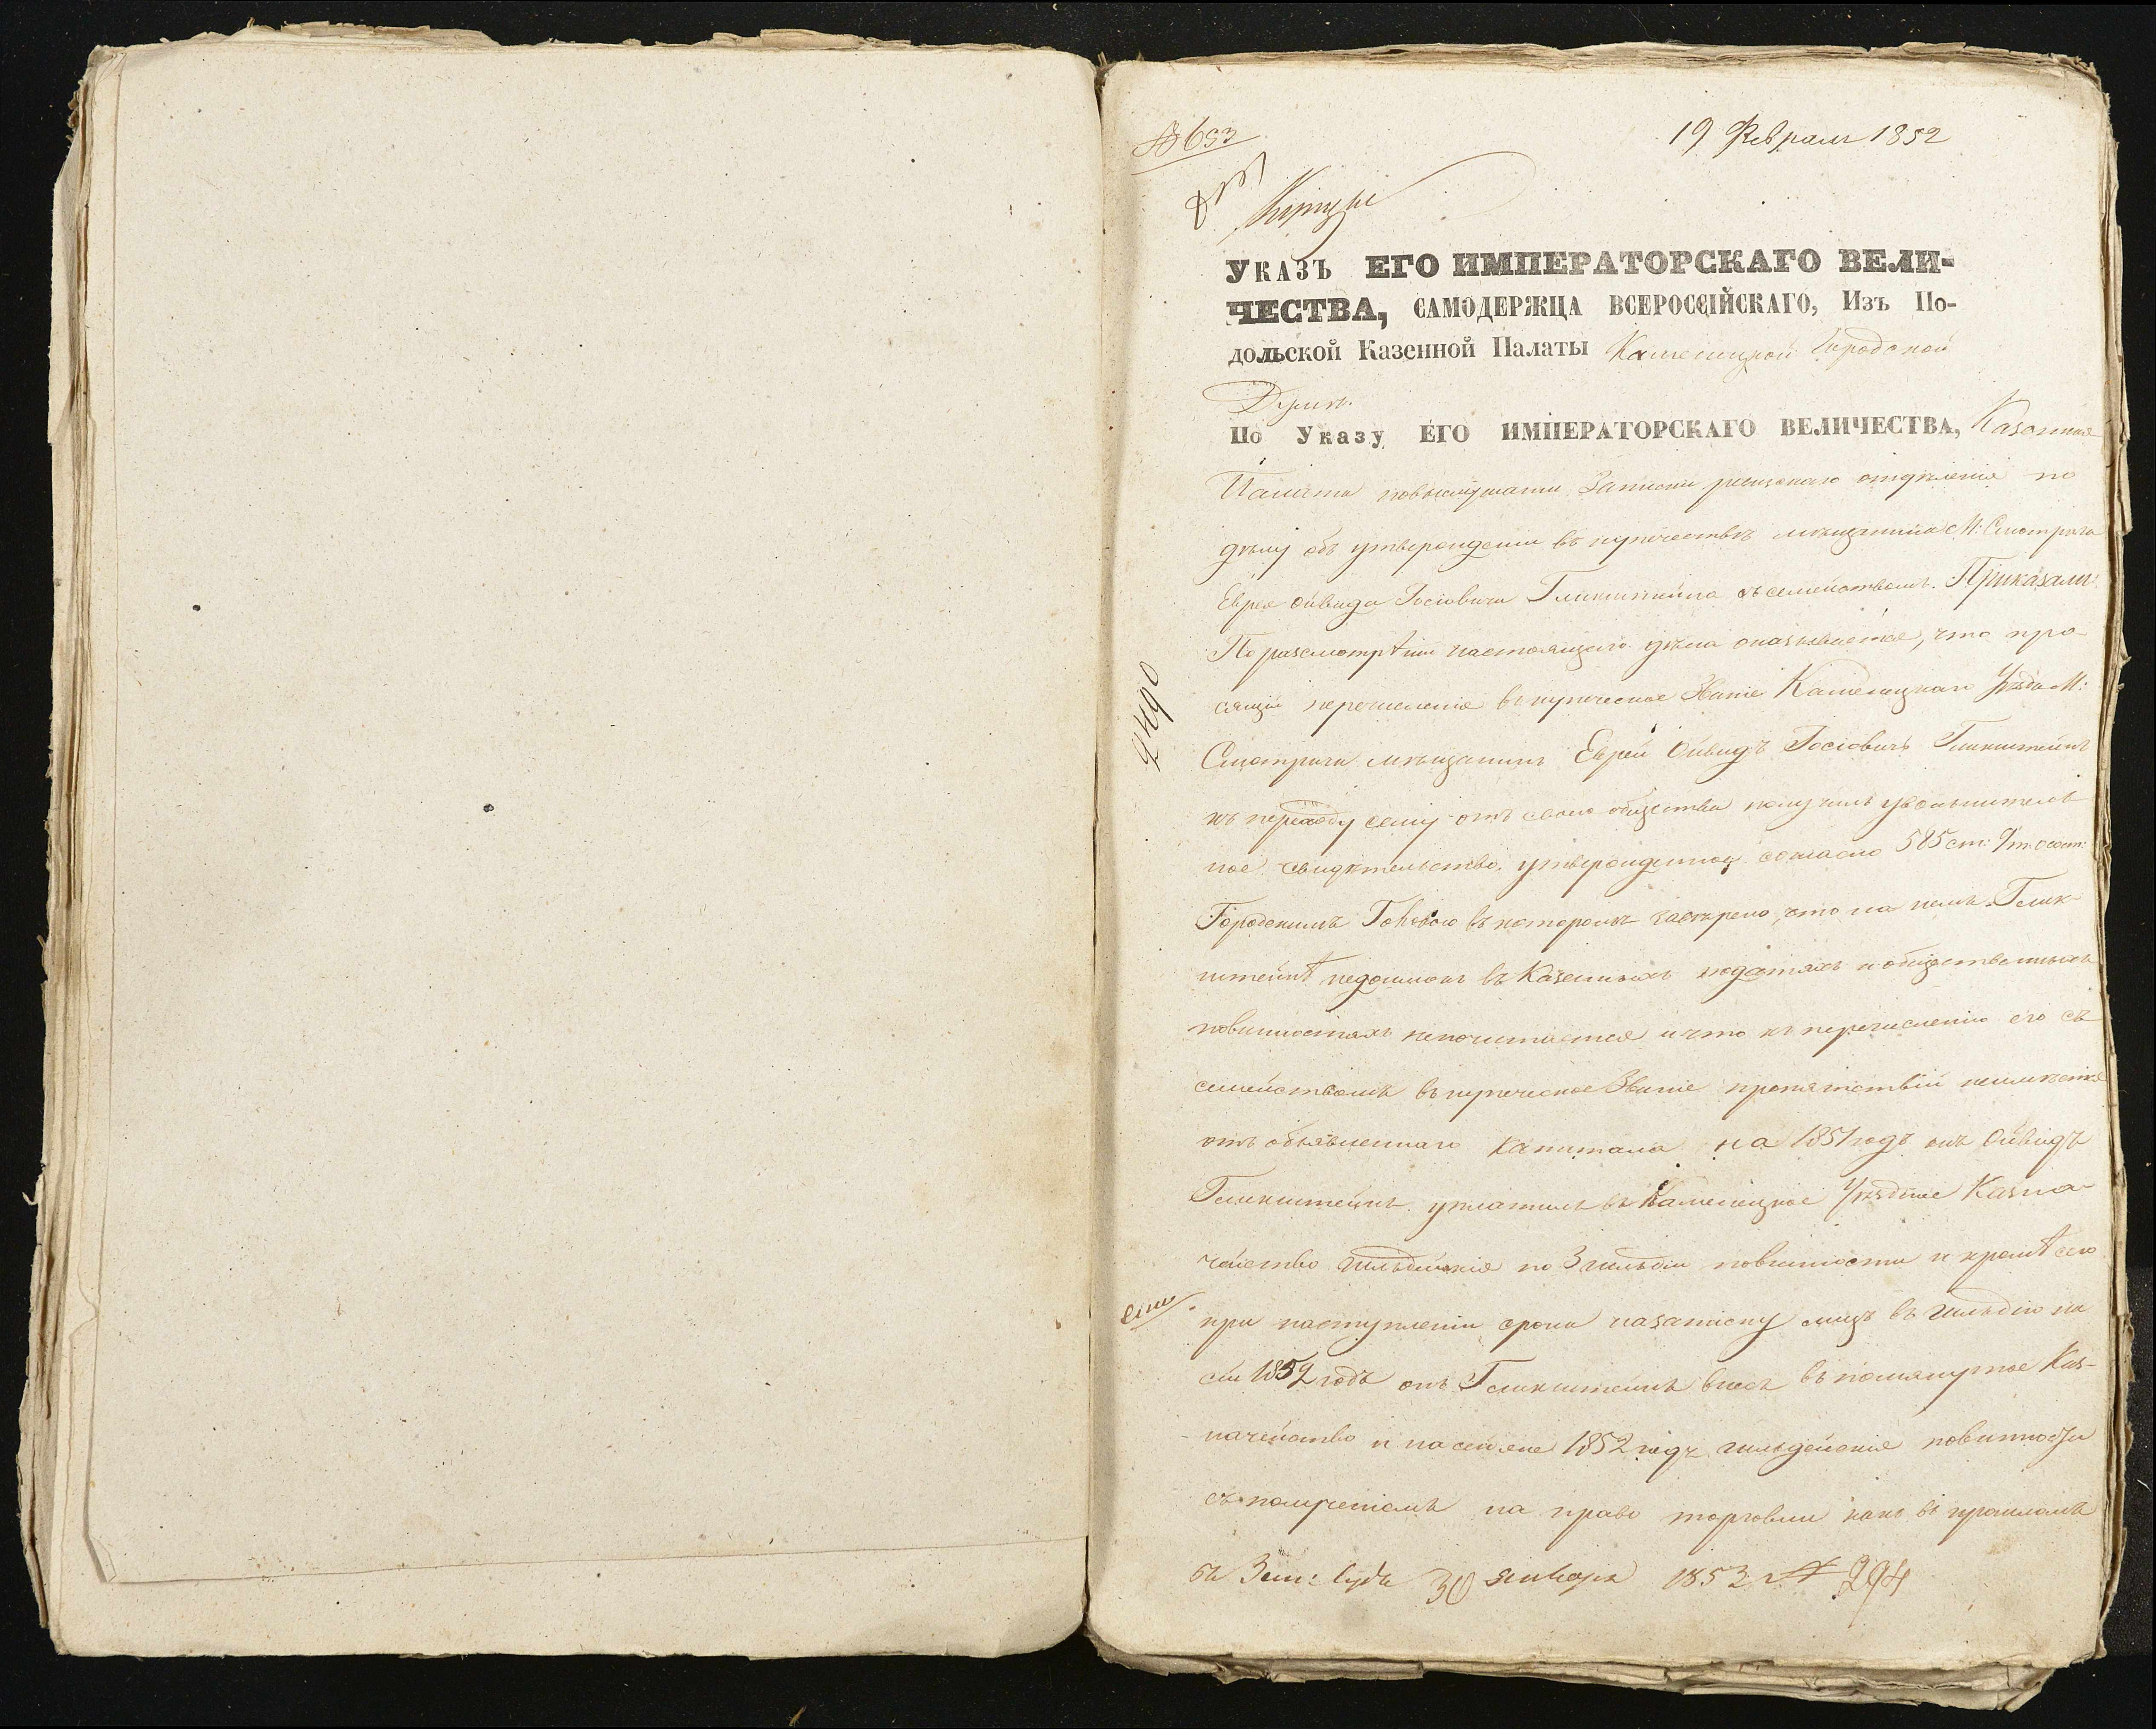 № 653
19 Февраля 1852
Купцы
УКАЗЪ ЕГО ИМПЕРАТОРСКАГО ВЕЛИ-
ЧЕСТВА, САМОДЕРЖЦА ВСЕРОССІЙСКАГО, Изъ По-
дольской Казенной Палаты Каменецкой Городской
Думѣ.
По Указу ЕГО ИМПЕРАТОРСКАГО ВЕЛИЧЕСТВА, Казенная
Палата по выслушати Записки ревизскаго отдѣленія по
дѣлу объ утвержденіи въ купечествѣ мѣщанина М: Смотрича
Еврея Ойвида Іосіовича Гликштейна съ семействомъ. Приказали:
По разсмотрѣніи настоящаго дѣла оказывается, что про-
сящій перечисленія въ купеческое Званіе Каменецкаго Уѣзда М:
Смотрича мѣщанинъ Еврей Ойвидъ Іосіовичъ Гликштейнъ
къ переходу сему отъ своего общества получилъ увольнитель
ное свидѣтельство, утвержденное согласно 585 ст: 9 т. о сост:
Городскимъ Головою въ которомъ завѣрено, что на немъ Глик-
штейнѣ недоимокъ въ Казенныхъ податяхъ и общественныхъ
повинностяхъ непочитается и что къ перечисленію его съ
семействомъ въ купеческое Званіе препятствій неимѣется
отъ объявленнаго капитала на 1851 годъ онъ Ойвидъ
Гликштейнъ уплатилъ въ Каменецкое Уѣздное Казна-
чейство гильдійскія по 3 гильдіи повинности и кромѣ сего
при наступленіи срока на записку лицъ въ Гильдію на
сей 1852 годъ онъ Гликштейнъ внесъ въ помянутое Каз-
начейство и на сей же 1852 годъ гильдейскія повинности
съ полученіемъ на право торговли какъ въ прошломъ
въ Зем: Судъ 30 Января 1853 № 294
2490